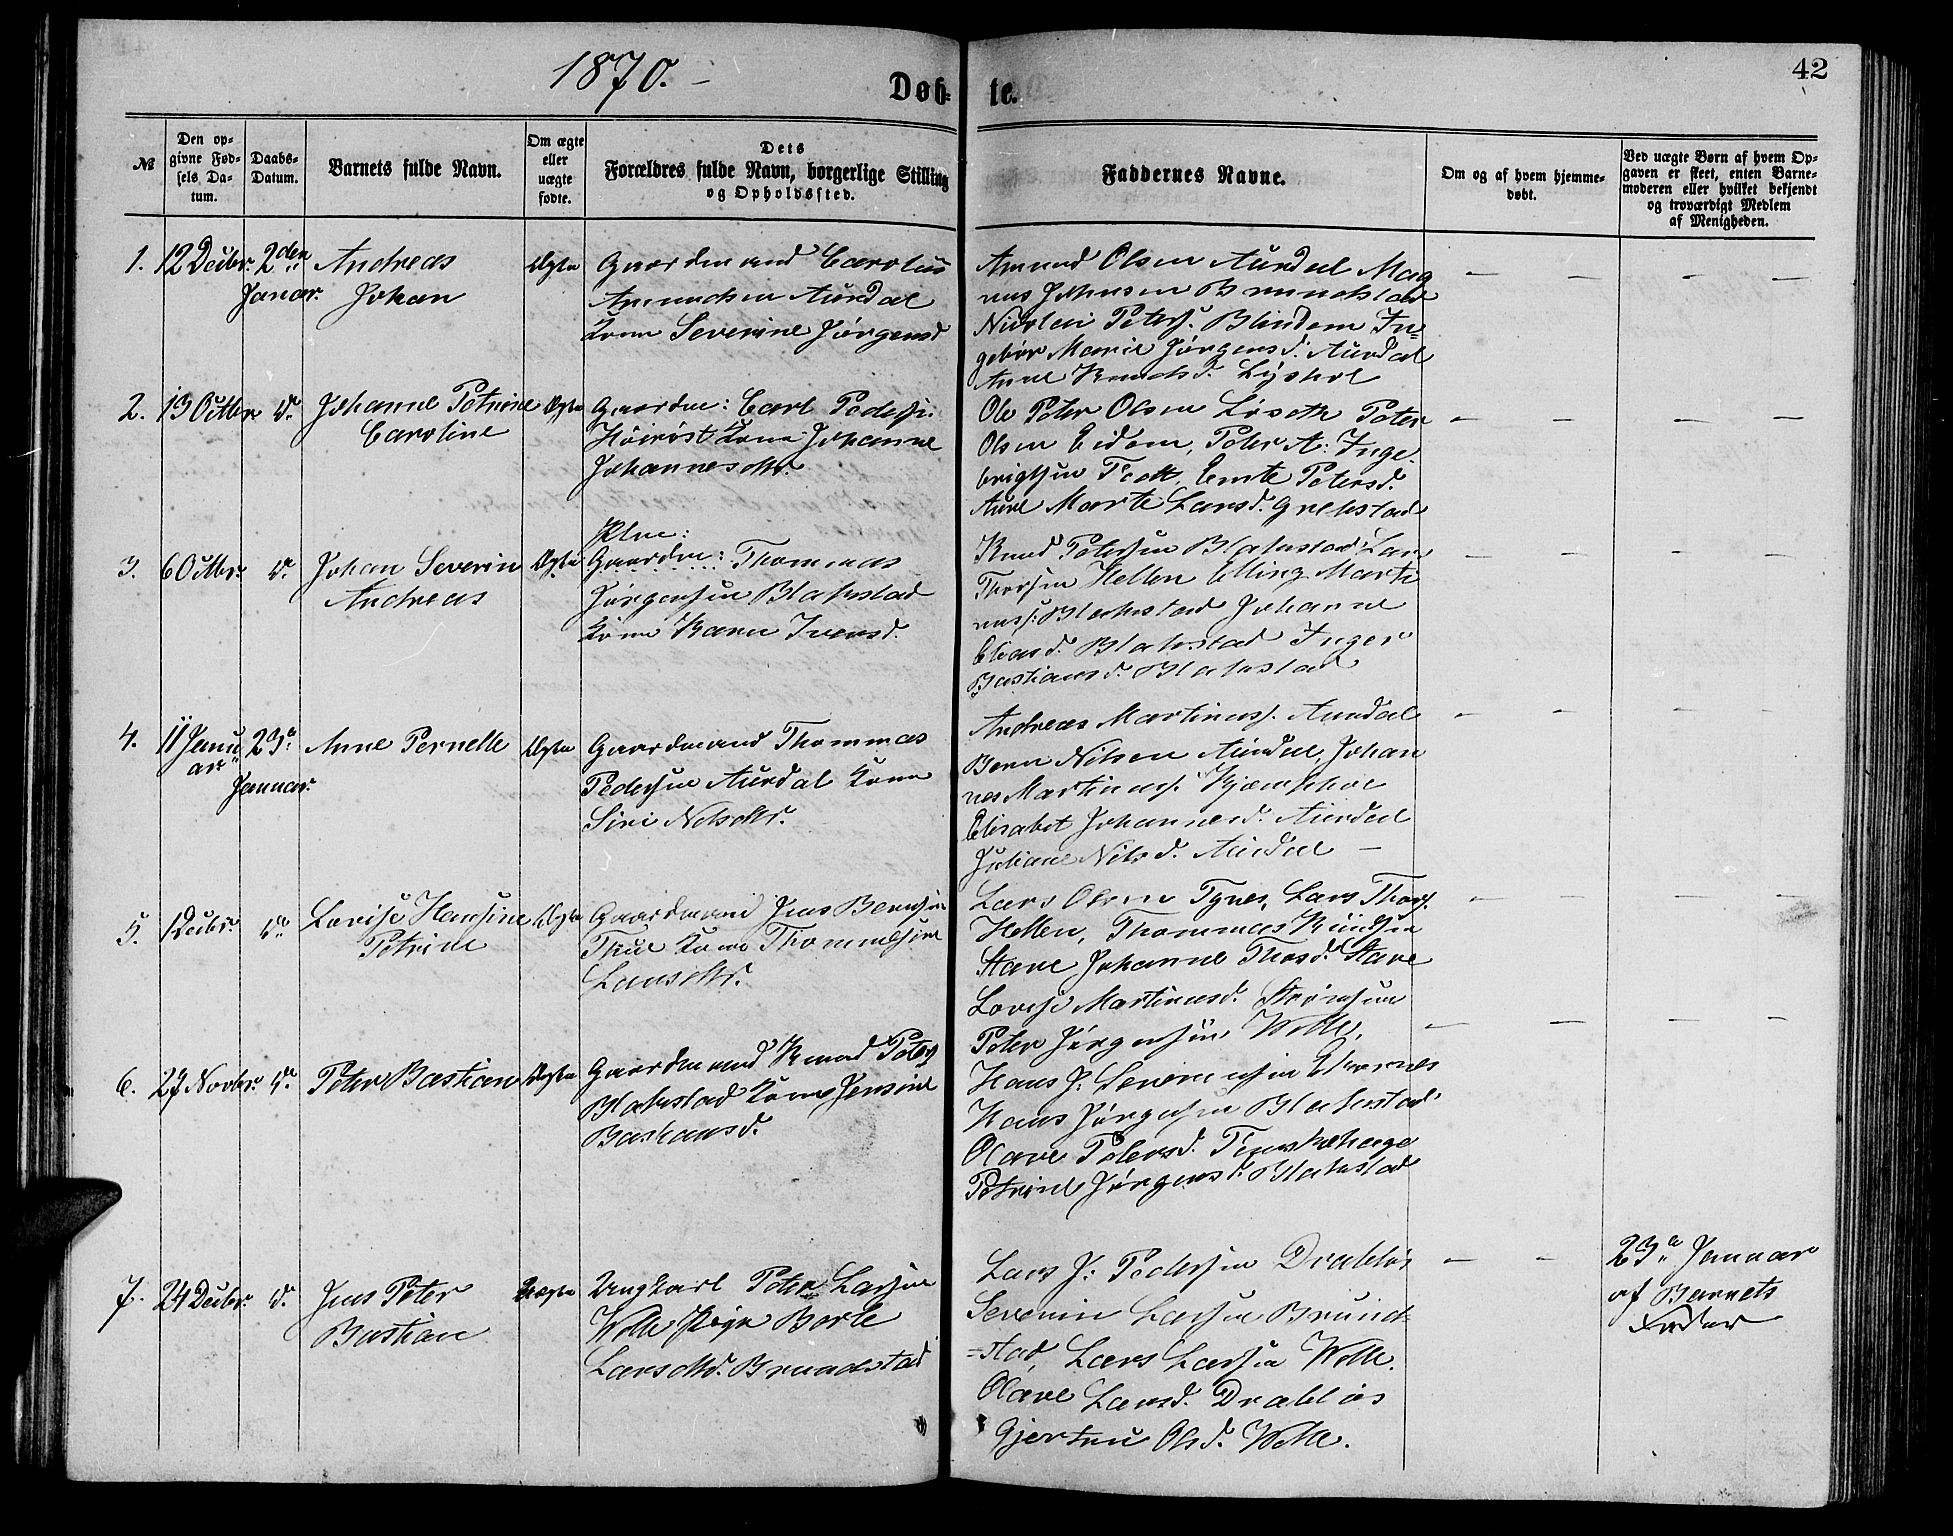 1870.
Døb-
te.
42
№
Den op-
givne Fød-
sels Da-
tum.
Daabs-
Datum.
Barnets fulde Navn.
Om ægte
eller
uægte
fødte.
Dets
Forældres fulde Navn, borgerlige Stilling
og Opholdssted.
Faddernes Navne.
Om og af hvem hjemme-
døbt.
Ved uægte Børn af hvem Op-
gaven er skeet, enten Barne-
moderen eller hvilket bekjendt
og troværdigt Medlem
af Menigheden.
1. 12 Decbr. 2den
Januar.
Andreas
Johan
Ægte
Gaardmand Carolus
Amundsen Aurdal
Kone Severine Jørgensd
Amund Olsen Aurdal Mag
nus Johnsen Brunestad
Nicolai Peters. Blindem In-
gebor Marie Jørgensd. Aurdal
Anne Knudsd. Lyshol
2. 13 Octbr d.
Johanne Petrine
Caroline
Ægte
Gaardm: Carl Peders.
Høirøst Kone Johanne
Johannesdtr.
Ole Peter Olsen Løseth Peter
Olsen Eidem, Peter A: Inge
brigtsen Tvedt, Emte Petersd.
Aure Marte Larsd. Grebstad
3. 6 Octbr. d.
Johan Severin
Andreas
Ægte
Plm:
Gaardm: Thommas
Jørgensen Blakstad
Kone Karen Iversd.
Knud Petersen Blakstad Lars
Thorsen Hellen Elling Marti
nus. Blakstad Johanne
Eliasd. Blakstad Inger
Bastiansd. Blakstad
4. 11 Janu
ar
23de
Januar.
Anne Pernelle
Ægte
Gaardmand Thommas
Pedersen Aurdal Kone
Sivi Nelsdtr.
Andreas Martinus. Aurdal
Bern Nilsen Aurdal, Johan
nes Martinus. Kjemphol
Elisabet Johannesd. Aurdal
Juliane Nilsd. Aurdal —
5. 1 Decbr. do
Lovise Hansine
Petrine
Ægte
Gaardmand Jens Bernsen
Thue Kone Thommesine
Larsdtr.
Lars Olsen Tynes, Lars Thors.
Hellen, Thommas Knudsen
Stave Johanne Thosd. Stave
Lovise Martinusd. Strømsem
6. 27 Novbr. d.
Peter Bastian
Ægte
Gaardmand Knud Peters
Blakstad Kone Jensine
Bastiansd.
Peter Jørgensen, Welle,
Hans J: Severinsen Ekornes
Hans Jørgensen Blakstad
Olave Petersd. Tuskehage
Petrine Jørgensd. Blakstad
7. 24 Decbr. d.
Jens Peter
Bastian
Uægte
Ungkarl Peter Larsen
Welle Pige Berte
Larsdtr. Brunestad
Lars J: Pedersen Drabløs
Severin Larsen Brune-
=stad, Lars Larsen Welle.
Olave Larsd. Drabløs
Gjertru Olsd. Welle.
23de Januar
af Barnets
Fader